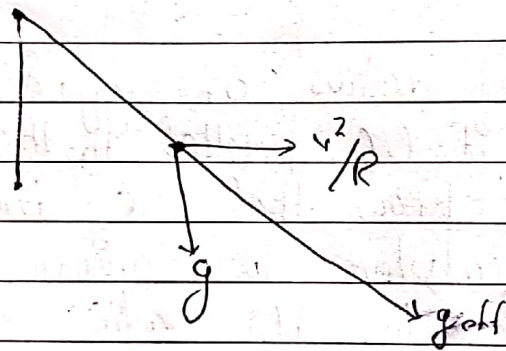 v²/R
g
g eff